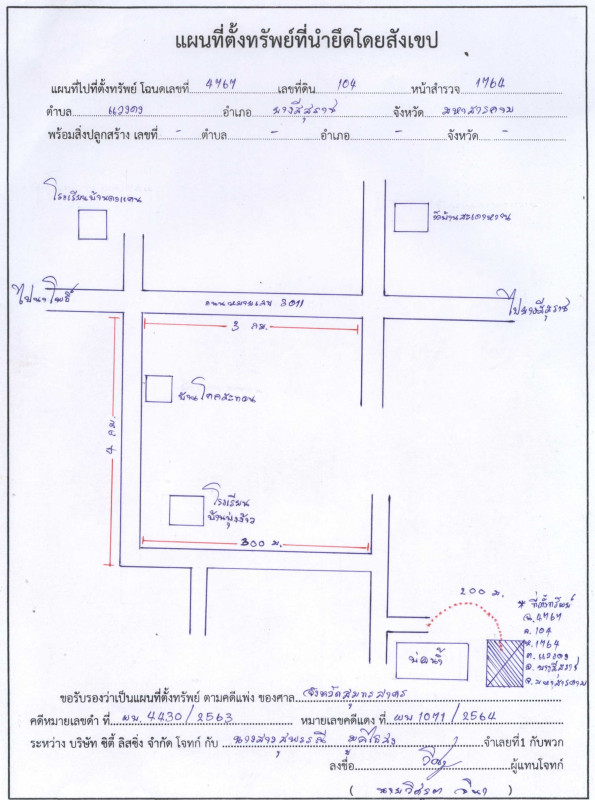 แผนที่ตั้งทรัพย์ที่นำยึดโดยสังเขป
แผนที่ไปที่ตั้งทรัพย์ โฉนดเลขที่ 4767 เลขที่ดิน 104 หน้าสำรวจ 1764
ตำบล แวงดง อำเภอ ยางสีสุราช จังหวัด มหาสารคาม
พร้อมสิ่งปลูกสร้าง เลขที่ - ตำบล - อำเภอ - จังหวัด -
วัดบ้านสะเดาหวาน
ไปนาโพธิ์
ถนนหมายเลข 3011
ไปยางสีสุราช
3 กม.
4 กม.
โรงเรียน
300 ม.
200 ม.
* ที่ตั้งทรัพย์
ฉ.4767
ล.104
ห.1764
ต.แวงดง
อ.ยางสีสุราช
จ.มหาสารคาม
บ่อน้ำ
ขอรับรองว่าเป็นแผนที่ตั้งทรัพย์ ตามคดีแพ่ง ของศาล จังหวัดสมุทรสาคร
คดีหมายเลขดำ ที่ ผบ. 4430 / 2563 หมายเลขคดีแดง ที่ ผบ 1071 / 2564
ระหว่าง บริษัท ซิตี้ ลิสซิ่ง จำกัด โจทก์ กับ นางสาวสุพรรณี จำเลยที่1 กับพวก
ลงชื่อ ผู้แทนโจทก์